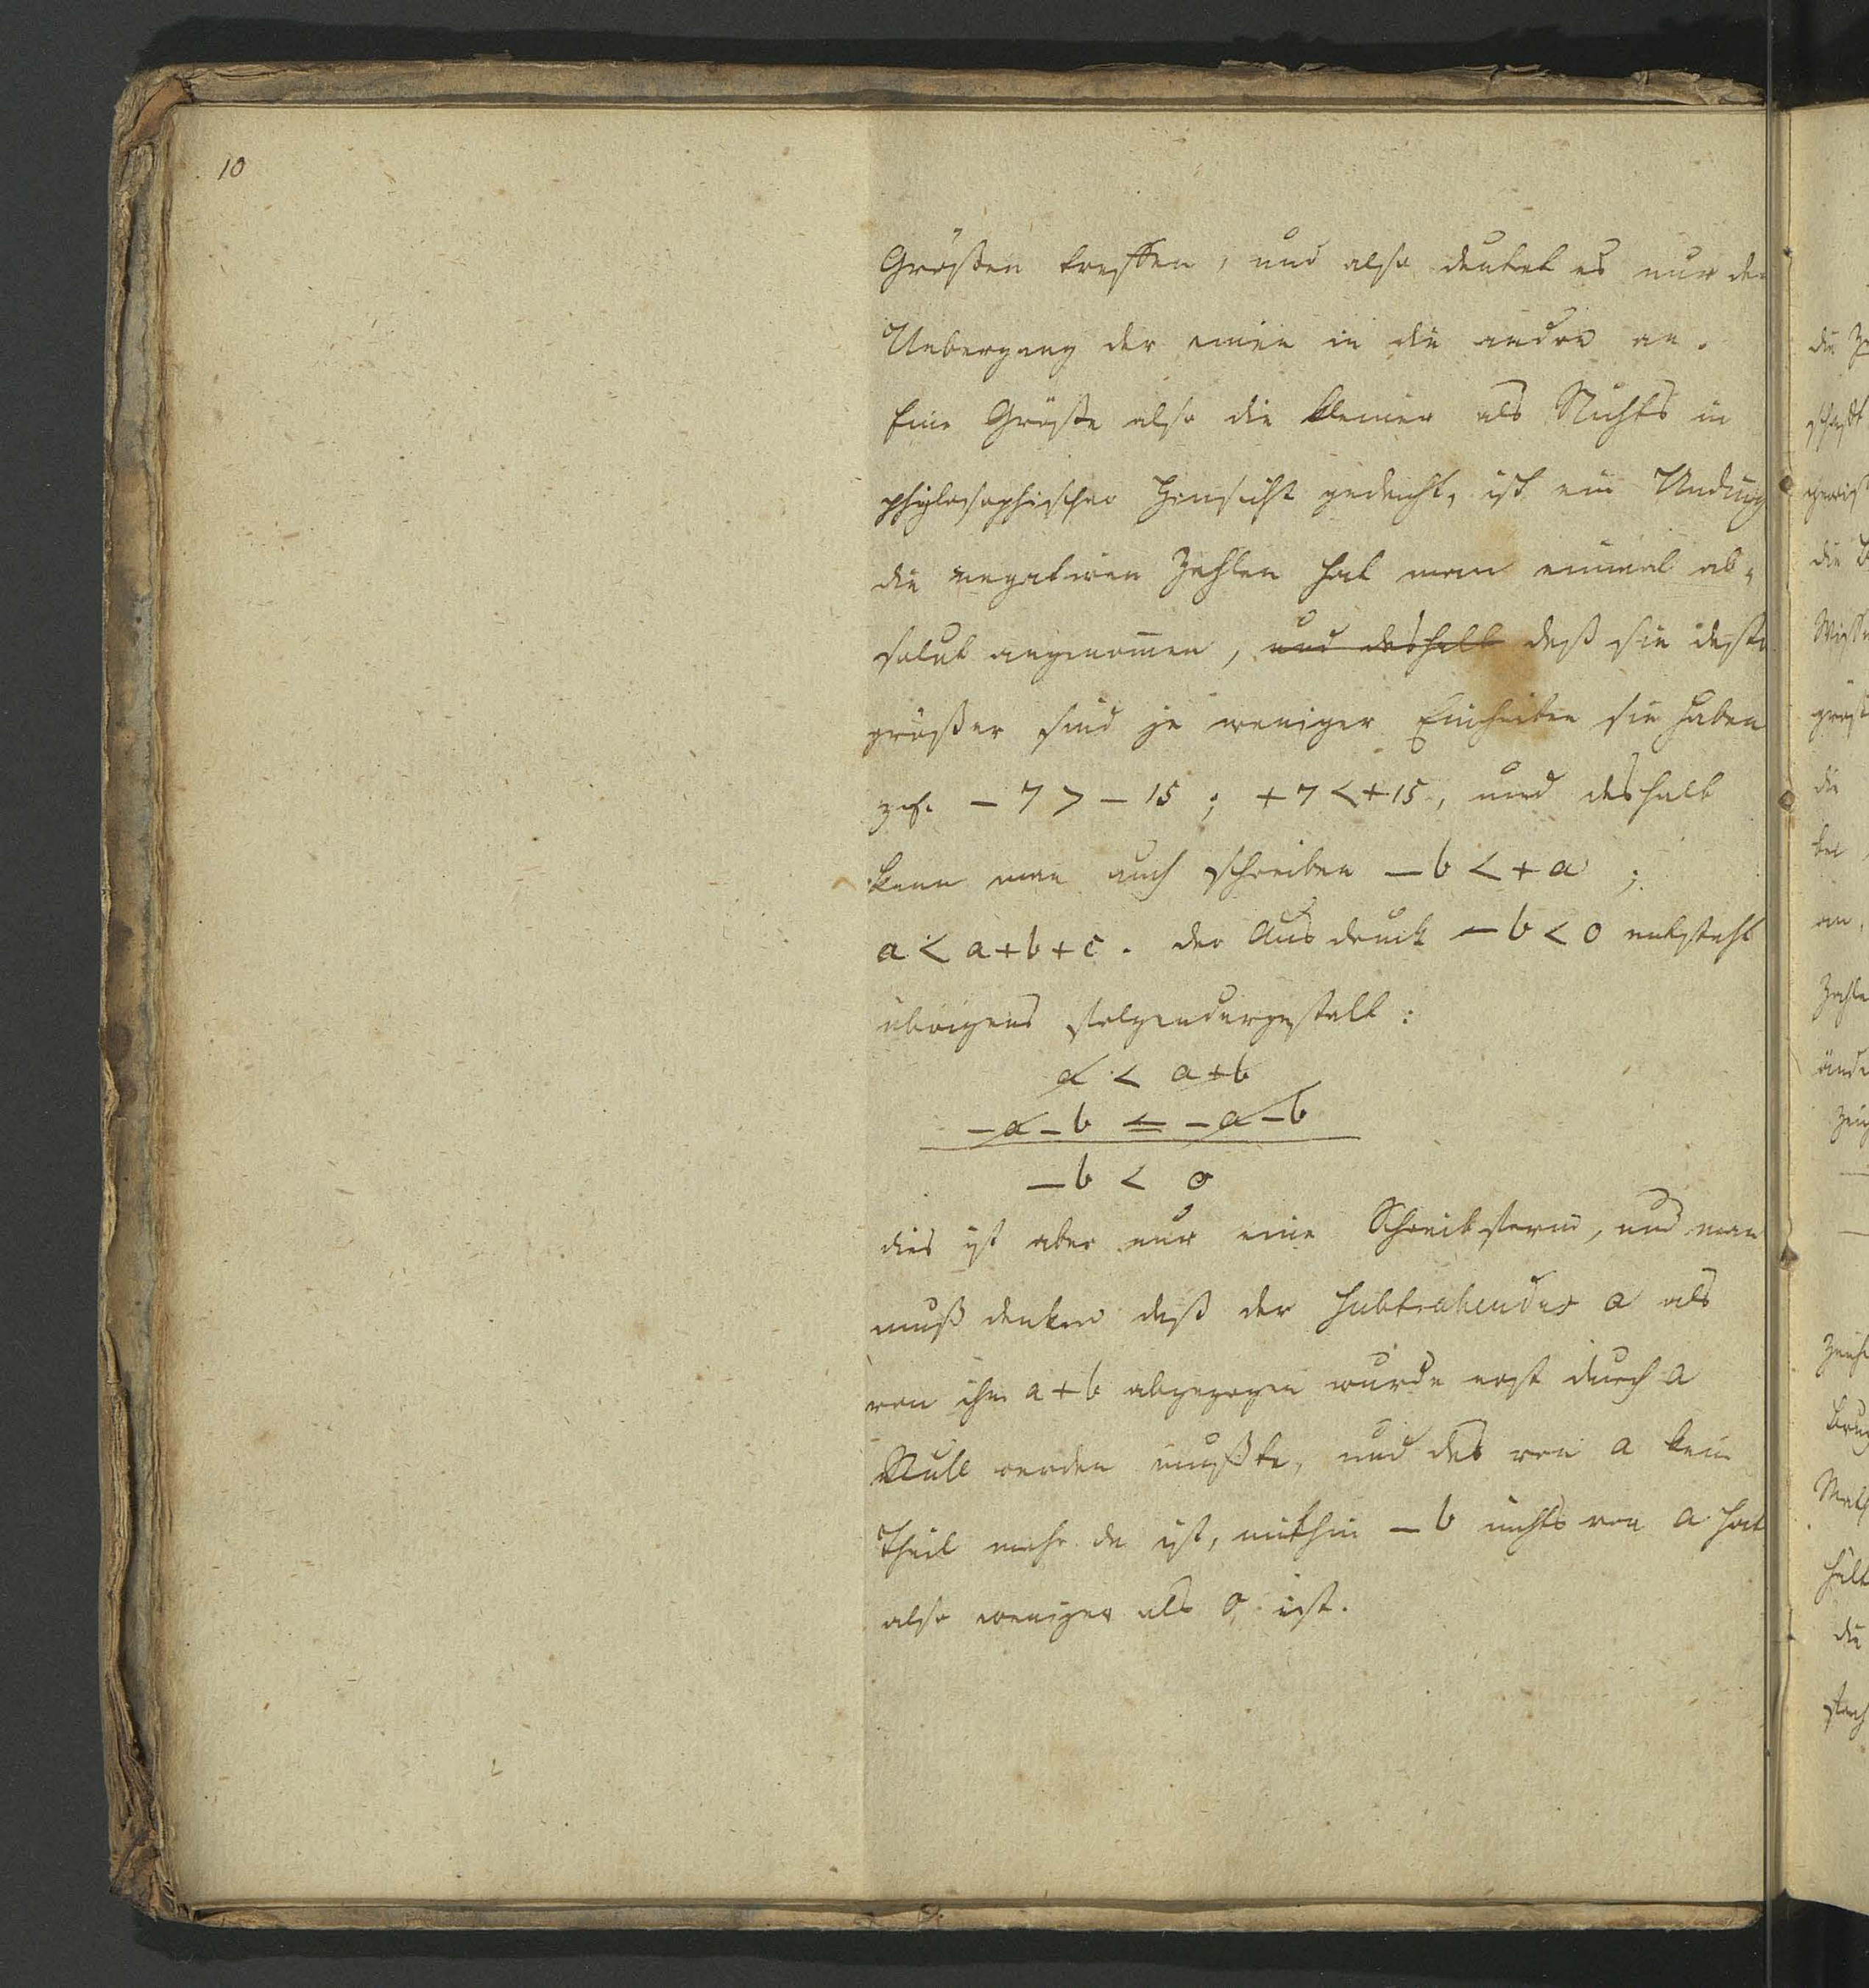 10
Größen treffen, und also deutet es nur den
Uebergang der einen in die andre an.
Eine Größe also die kleiner als Nichts in
philosophischer Hinsicht gedacht, ist ein Unding
die negativen Zahlen hat man einmal ab-
solut angenom̅en, und deshalb daß sie desto
größer sind je weniger Einheiten sie haben
− 7 > − 15 ; + 7 < + 15, und deshalb
kann man auch schreiben − b < + a ;
a < a + b + c . der Ausdruck − b < 0 entsteht
übrigens folgendergestalt :
a < a + b
− a − b = − a − b
− b < 0
dies ist aber nur eine Schreibform, und man
muß denken daß der Subtrahendus a als
von ihm a + b abgezogen wurde erst durch a
Null werden mußte, und das von a kein
Theil mehr da ist, mithin − b nichts von a hat
also weniger als 0 ist.